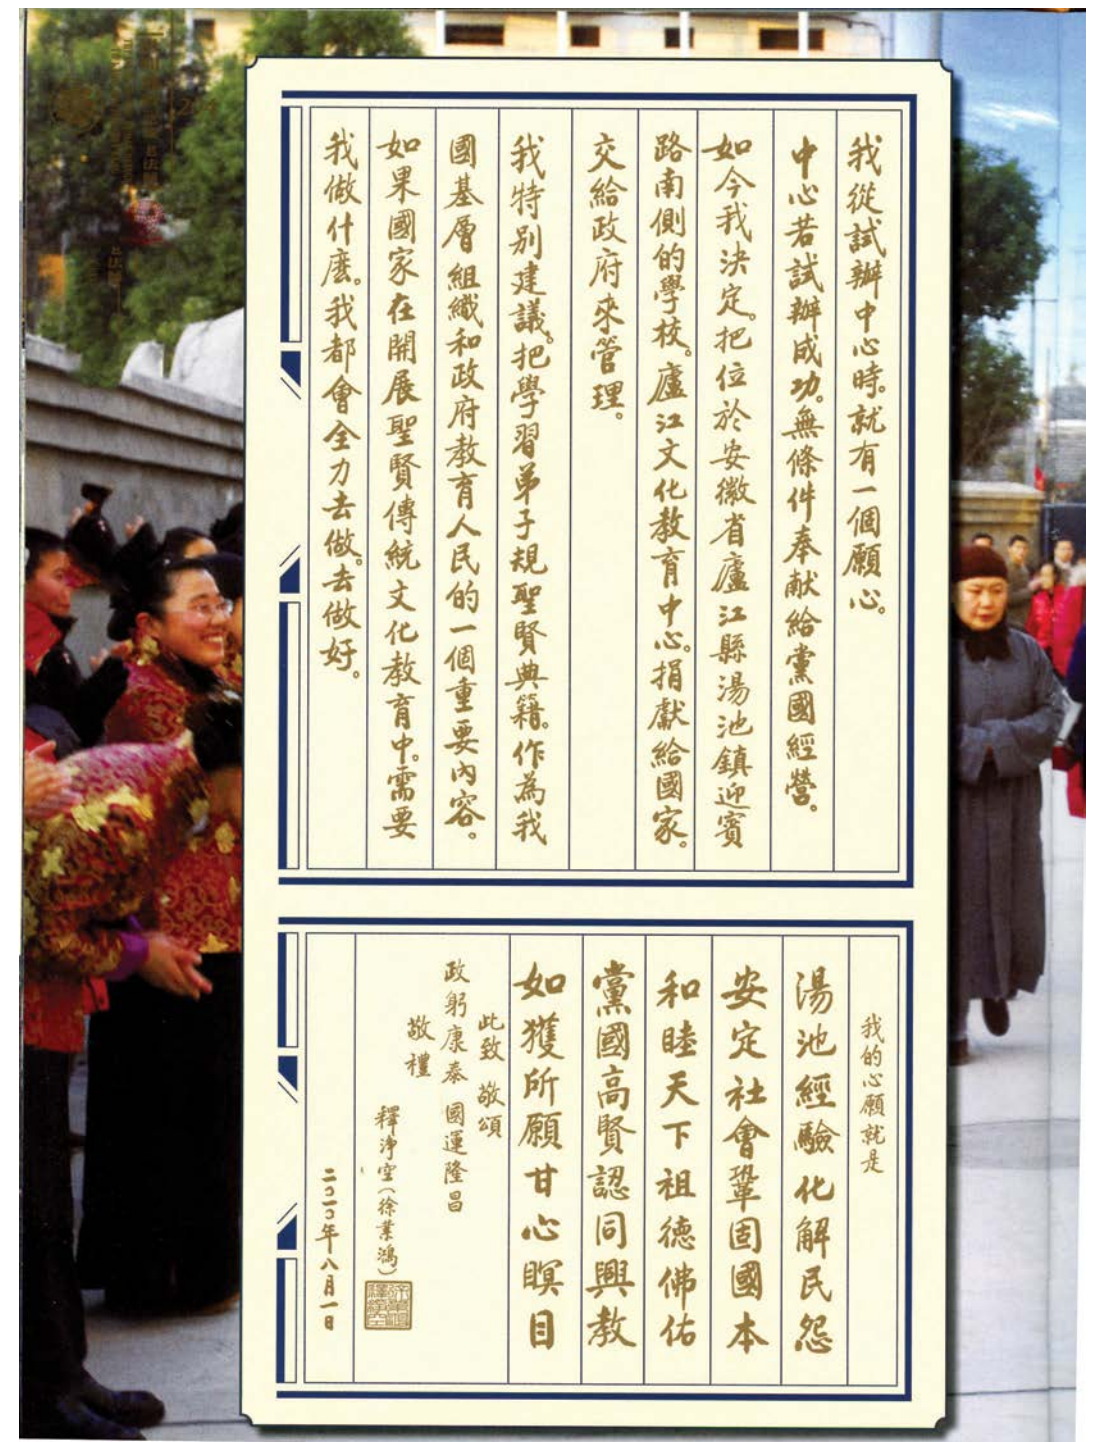 我從試辦中心時。就有一個願心。
中心若試辦成功。無條件奉献給黨國經營。
如今我決定。把位於安徽省廬江縣湯池鎮迎賓
路南側的學校。廬江文化教育中心。捐獻給國家。
交給政府來管理。
我特別建議。把學習弟子規聖賢典籍。作為我
國基層組織和政府教育人民的一個重要內容。
如果國家在開展聖賢傳統文化教育中。需要
我做什麼。我都會全力去做。去做好。
我的心願就是
湯池經驗化解民怨
安定社會鞏固國本
和睦天下祖德佛佑
黨國高賢認同興教
如獲所願甘心瞑目
此致 敬頌
政躬康泰 國運隆昌
敬禮
釋淨空(徐業鴻)
二〇一〇年八月一日